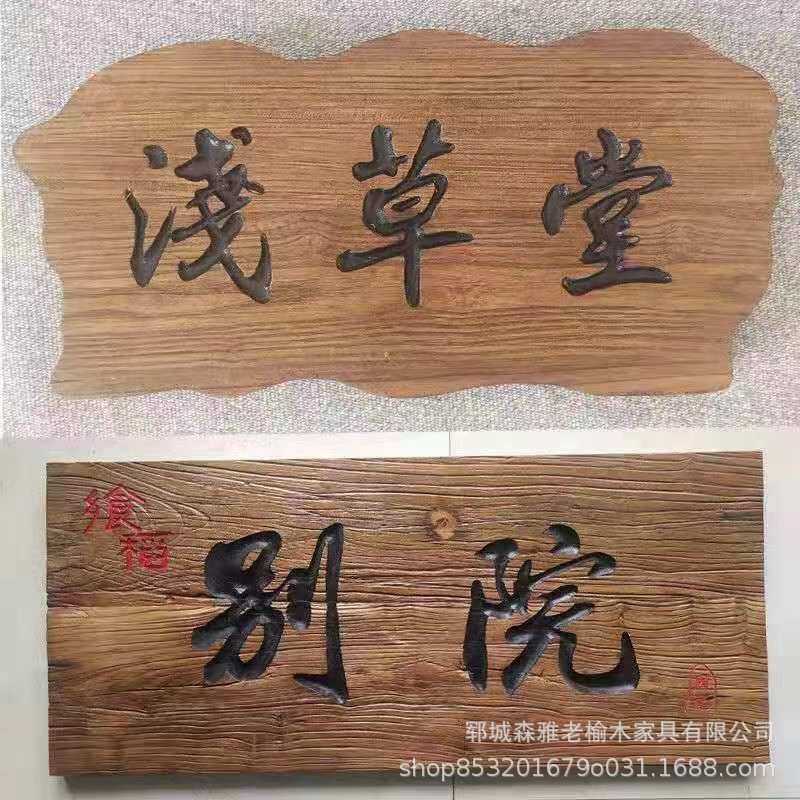 淺草堂
別院
郓城森雅老榆木家具有限公司
shop853201679o031.1688.com